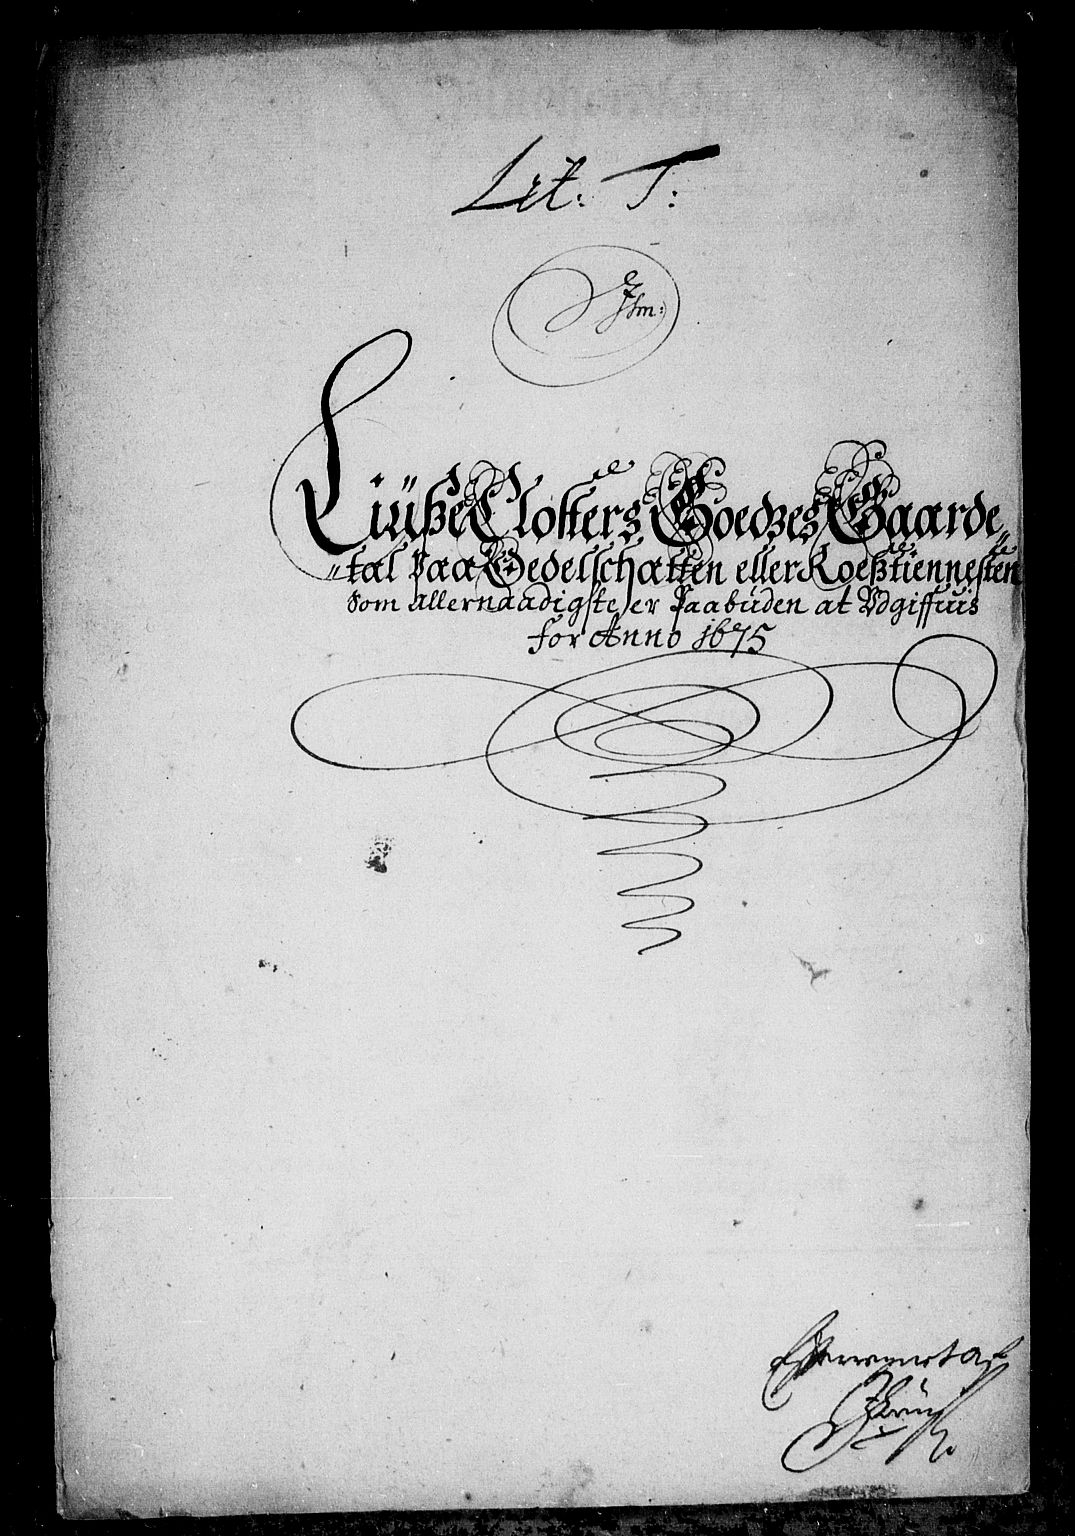 Lit: T:
Liüsze Closters Goedzes Gaarde„
„tal Paa Gedelschatten eller Roesztiennesten
Som Allernaadigste er Paabüden at Vdgiffuis
for Anno 1675